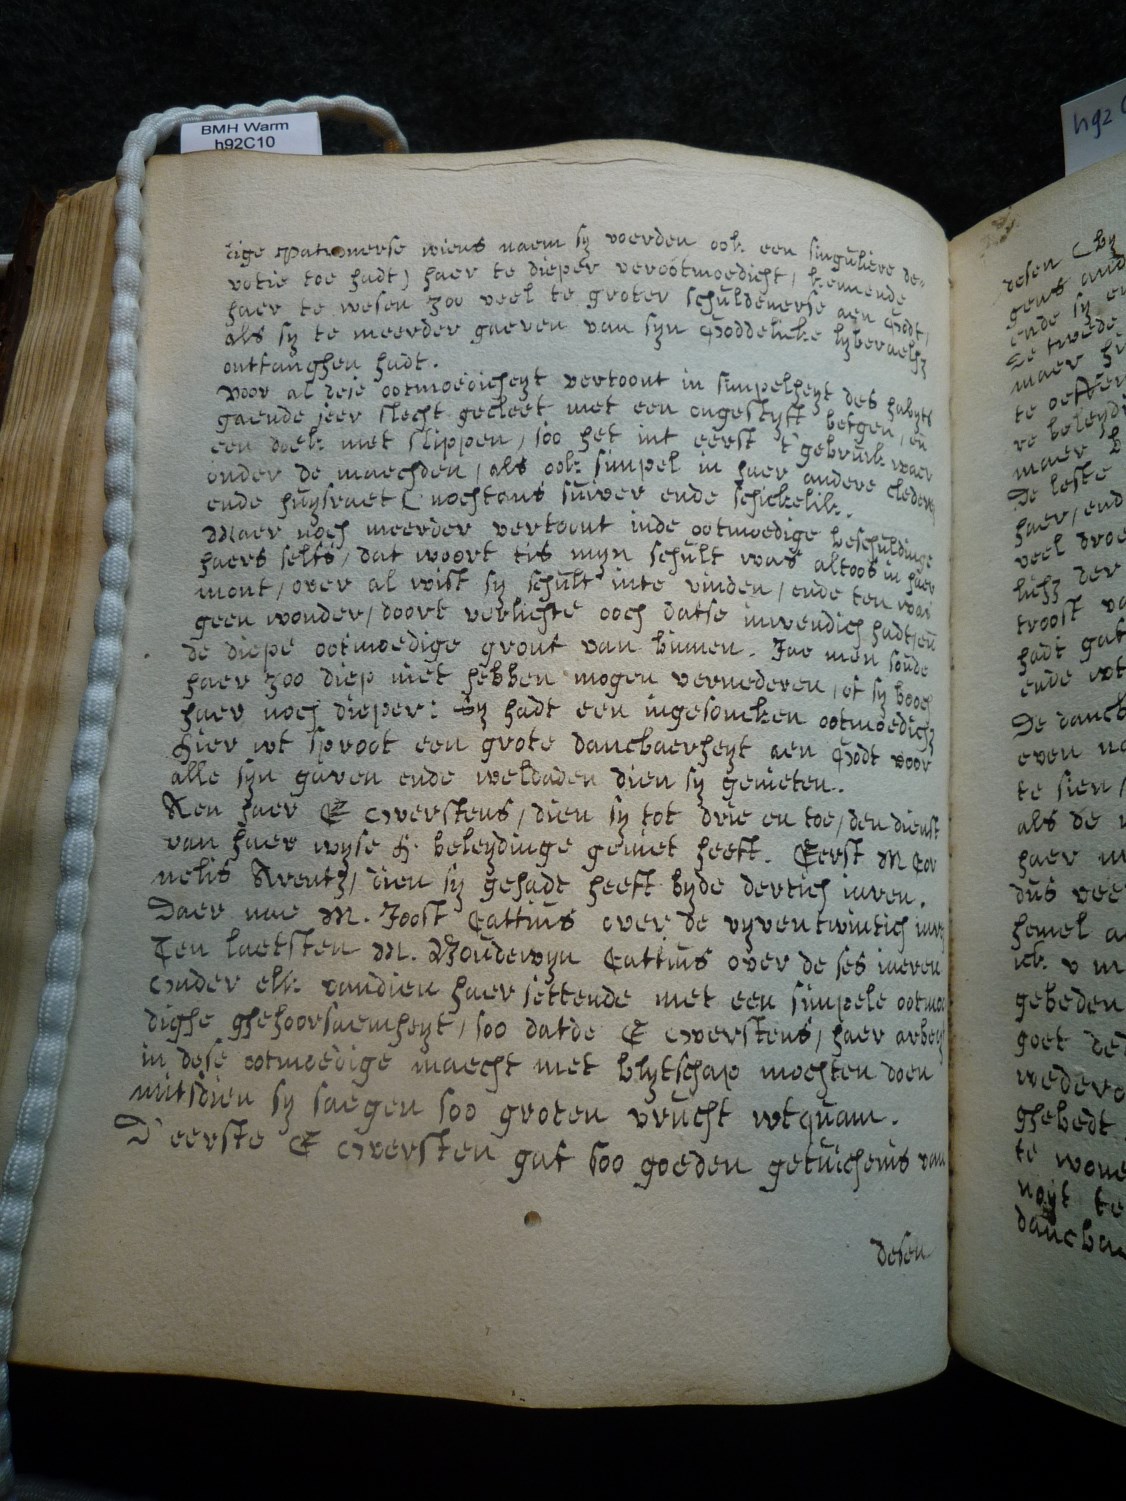 BMH Warm
h92C10
h92
tige Patronerse wiens naem sy voerden ook een singuliere de-
votie toe hadt) haer te dieper verootmoedicht, kennende
haer te wesen zoo veel te groter schuldenerse aen Godt,
als sy te meerder gaeven van syn Goddelicke lyberaelh
ontfanghen hadt.
Voor al dese ootmoedicheyt vertoont in simpelheyt des habyts
gaende seer slecht gecleet met een ongestyft befgen, en
een doek met slippen, soo het int eerst t'gebruik waer
onder de maechden, als ook simpel in haer andere cledern
ende huysraet (nochtans suiver ende schickelik.
Maer noch meerder vertoont inde ootmoedige beschuldinge
haers selfs, dat woort tis myn schult was altoos in haer
mont, over al wist sy schult inte vinden, ende ten was
geen wonder, doort verlichte ooch datse inwendich hadt, en
de diepe ootmoedige gront van binnen. Jae men soude
haer zoo diep niet hebben mogen vernederen, of sy booch
haer noch dieper: Sy hadt een ingesoncken ootmoedich
Hier wt sproot een grote dancbaerheyt aen Godt voor
alle syn gaven ende weldaden dien sy genieten.
Aen haer E Oversten, dien sy tot drie en toe, den dienst
van haer wyse H. beleydinge geniet heeft. Eerst M Cor
nelis Arentz, dien sy gehadt heeft byde dertich iaren.
Daer nae M. Joost Cattius over de vyventwintich iare
Ten laetsten M. Boudewyn Cattius over de ses iaeren
Onder elk vandien haer settende met een simpele ootmoe
dighe ghehoorsaemheyt, soo datde E Oversten, haer arbeyt
in dese ootmoedige maecht met blytschap mochten doen
mitsdien sy saegen soo groten vrucht wtquam.
D'eerste E Oversten gaf soo goeden getuichenis van
desen
resen (by
gens and
ende sy en
De twede
maer
te oeffen
re beleydi
maer
De leste
haer, end
veel droe
der
troost va
hadt gat
ende
De dancb
even na
te sien,
als de
haer
dus vee
hemel a
ick v m
gebeden
goet de
wedero
ghebedt
te wone
noyt te
dancba